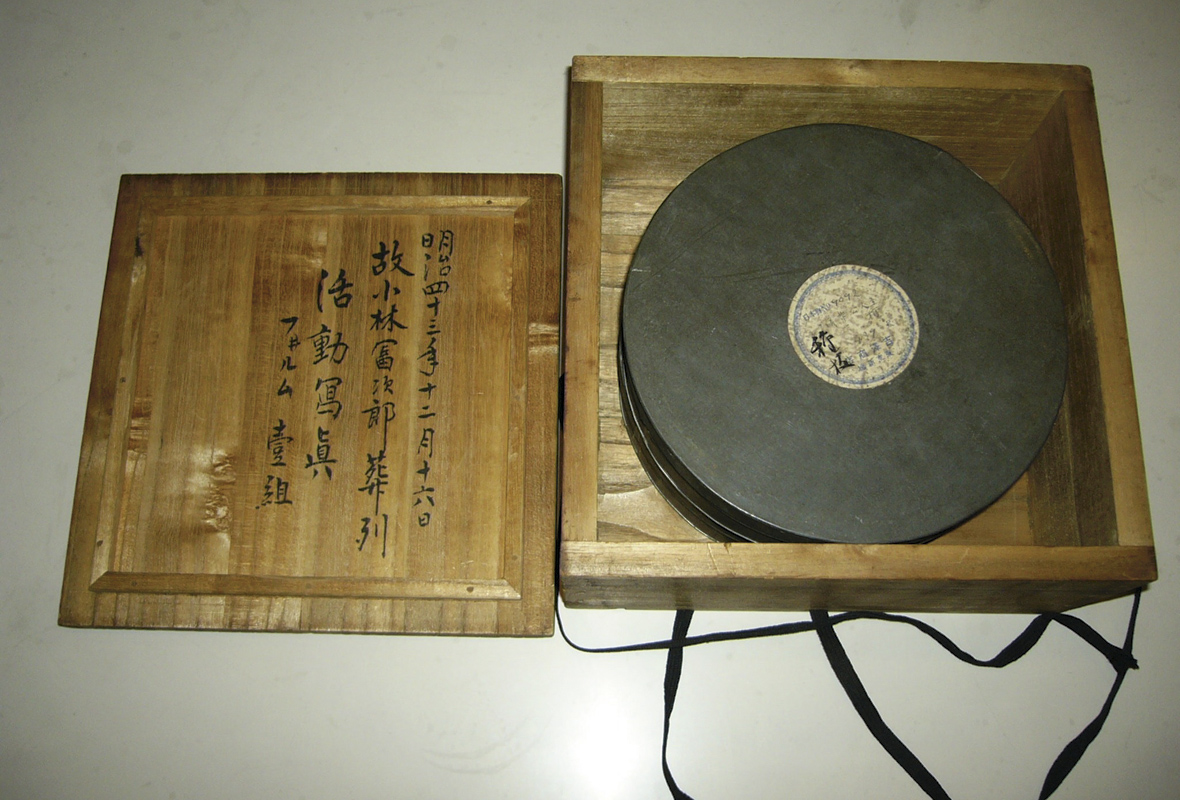 明治四十三年十二月十六日
故小林富次郎葬列
活動寫眞
フ井ルム 壹組